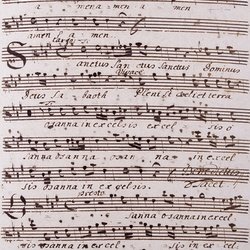 a mena men a
amen a men.
Largo
Sanctus San ctus Sanctus Dominus
Vivace
Deus Sa baoth Pleni st caeli et terra
osanna in excelsis ex cel sis o
sanna osanna osan na in excel
sis osanna in excelsis. Benedictus
Tacet
presto
Osanna in excel